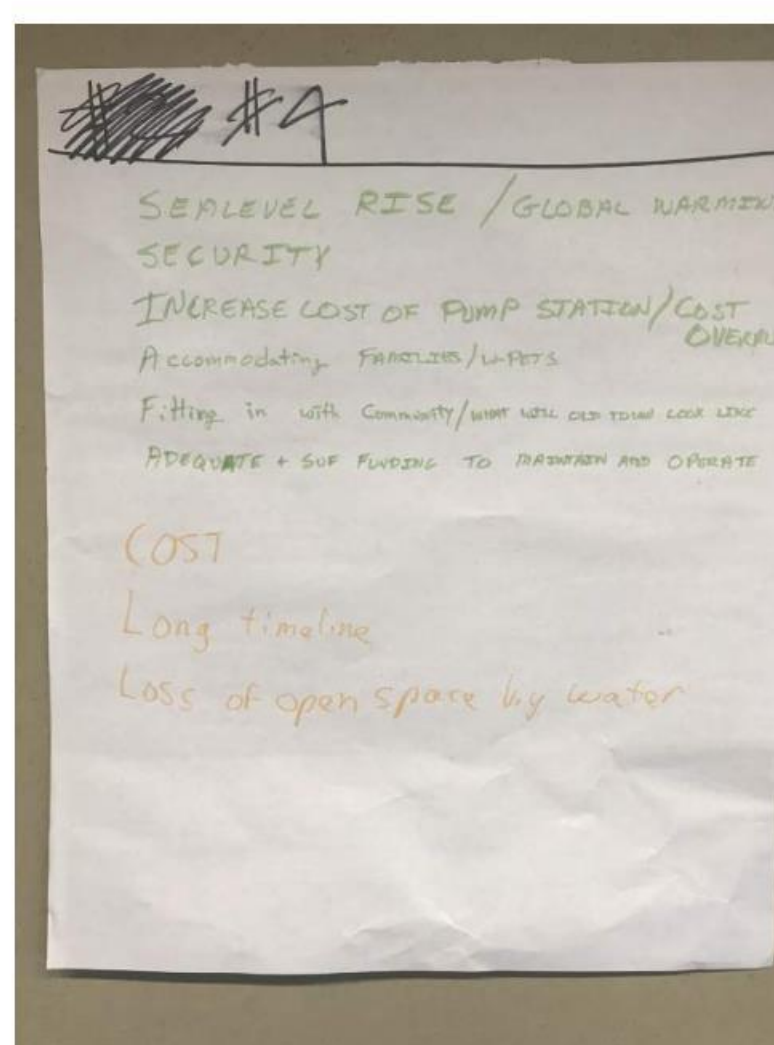 #4
SEALEVEL RISE / GLOBAL WARMIN
SECURITY
INCREASE COST OF PUMP STATION/COST
OVERRU
Accommodating FAMILIES/W-PETS
Fitting in with Community/WHAT WILL OLD TOWN LOOK LIKE
ADEQUATE + SUF FUNDING TO MAINTAIN AND OPERATE
COST
Long timeline
Loss of open space by water